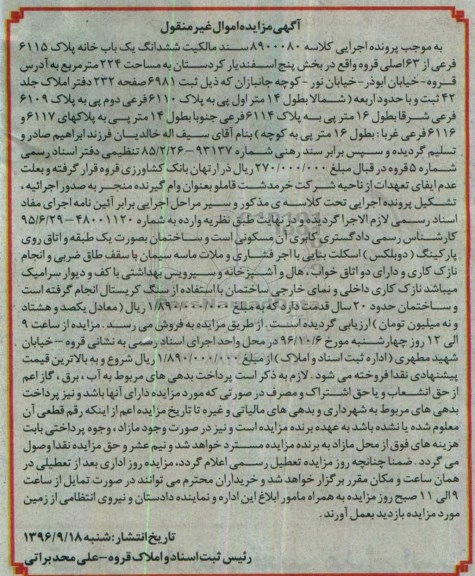 آگهی مزایده اموال غیر منقول
به موجب پرونده اجرایی کلاسه ۸۹۰۰۰۸۰ سند مالکیت ششدانگ یک باب خانه پلاک ۶۱۱۵
فرعی از ۶۳ اصلی قروه واقع در بخش پنج اسفندیار کردستان به مساحت ۲۲۴ متر مربع به آدرس
قروه- خیابان ابوذر- خیابان نور- کوچه جانبازان که ذیل ثبت ۶۹۸۱ صفحه ۲۳۲ دفتر املاک جلد
۴۲ ثبت و با حدود اربعه (شمالا بطول ۱۴ متر اول پی به پلاک ۶۱۱۰ فرعی دوم پی به پلاک ۶۱۰۹
فرعی شرقا بطول ۱۶ متر پی به پلاک ۶۱۱۴ فرعی جنوبا بطول ۱۴ متر پی به پلاکهای ۶۱۱۷ و
۶۱۱۶ فرعی غربا: بطول ۱۶ متر پی به کوچه) بنام آقای سیف اله خالدیان فرزند ابراهیم صادر و
تسلیم گردیده و سپس برابر سند رهنی شماره ۹۳۱۳۷- ۸۵/۲/۲۶ تنظیمی دفتر اسناد رسمی
شماره ۵ قروه در قبال مبلغ ۲۷۰/۰۰۰/۰۰۰ ریال در رهن بانک کشاورزی قروه قرار گرفته و بعلت
عدم ایفای تعهدات از ناحیه شرکت خرمدشت قاملو بعنوان وام گیرنده منجر به صدور اجرائیه،
تشکیل پرونده اجرایی تحت کلاسه ی مذکور و سیر مراحل اجرایی برابر آئین نامه اجرای مفاد
اسناد رسمی لازم الاجرا گردیده و در نهایت طبق نظریه وارده به شماره ۴۸۰۰۱۱۲۰- ۹۵/۶/۲۹
کارشناس رسمی دادگستری کابری آن مسکونی است و ساختمان بصورت یک طبقه و اتاق روی
پارکینگ (دوبلکس) اسکلت بنایی با اجر فشاری و ملات ماسه سیمان با سقف طاق ضربی و انجام
نازک کاری و دارای دو اتاق خواب، هال و آشپزخانه و سیرویس بهداشتی با کف و دیوار سرامیک
میباشد نازک کاری داخلی و نمای خارجی ساختمان با استفاده از سنگ کریستال انجام گرفته است
و ساختمان حدود ۲۰ سال قدمت دارد که به مبلغ ۱/۸۹۰/۰۰۰/۰۰۰ ریال (معادل یکصد و هشتاد
و نه میلیون تومان) ارزیابی گردیده است. از طریق مزایده به فروش می رسد. مزایده از ساعت ۹
الی ۱۲ روز چهارشنبه مورخ ۹۶/۱۰/۶ در محل واحد اجرای اسناد رسمی به نشانی قروه- خیابان
شهید مطهری (اداره ثبت اسناد و املاک) از مبلغ ۱/۸۹۰/۰۰۰/۰۰۰ ریال شروع و به بالاترین قیمت
پیشنهادی نقدا فروخته می شود. لازم به ذکر است پرداخت بدهی های مربوط به آب، برق، گاز اعم
از حق انشعاب و یا حق اشتراک و مصرف در صورتی که مورد مزایده دارای آنها باشد و نیز پرداخت
بدهی های مربوط به شهرداری و بدهی های مالیاتی و غیره تا تاریخ مزایده اعم از اینکه رقم قطعی آن
معلوم شده یا نشده باشد به عهده برنده مزایده است و نیز در صورت وجود مازاد، وجوه پرداختی بابت
هزینه های فوق از محل مازاد به برنده مزایده مسترد خواهد شد و نیم عشر و حق مزایده نقدا وصول
می گردد. ضمنا چنانچه روز مزایده تعطیل رسمی اعلام گردد، مزایده روز اداری بعد از تعطیلی در
همان ساعت و مکان مقرر برگزار خواهد شد و خریداران محترم می توانند در صورت تمایل از ساعت
۹ الی ۱۱ صبح روز مزایده به همراه مامور ابلاغ این اداره و نماینده دادستان و نیروی انتظامی از زمین
مورد مزایده بازدید بعمل آورند.
تاریخ انتشار: شنبه ۱۳۹۶/۹/۱۸
رئیس ثبت اسناد و املاک قروه- علی محمد براتی